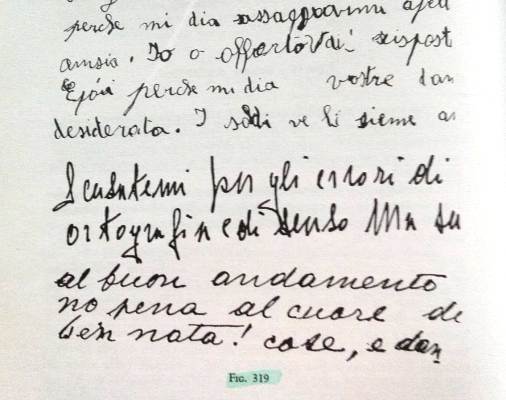 perche mi dia
ansia. Io o offerto Vai! rispost
perche mi dia vostre dan
desiderata. I soldi ve li sieme
Scusatemi per gli errori di
ortografia e di senso Ma su
al buon andamento
no pena al cuore de
ben nata! cose, e dan
FIG. 319